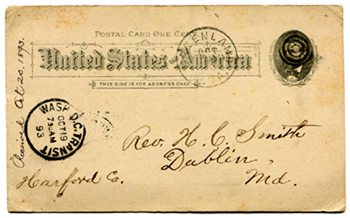 POSTAL CARD ONE CENT
United States of America
THIS SIDE IS FOR ADDRESS ONLY
OCT
Oct 20, 1893.
WASH. D.C. TRANSIT
OCT 19
AM
93
Rev. H. C. Smith
Dublin,
Harford Co.
Md.